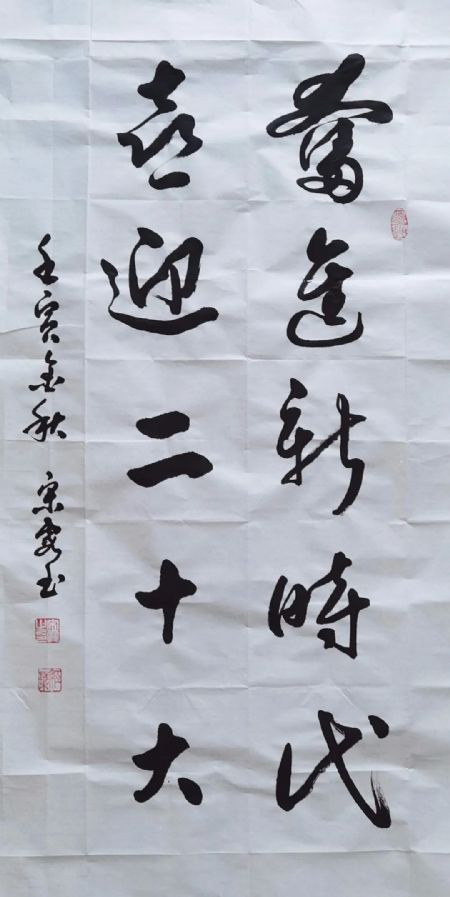 奮進新時代
喜迎二十大
壬寅金秋 宋安玉